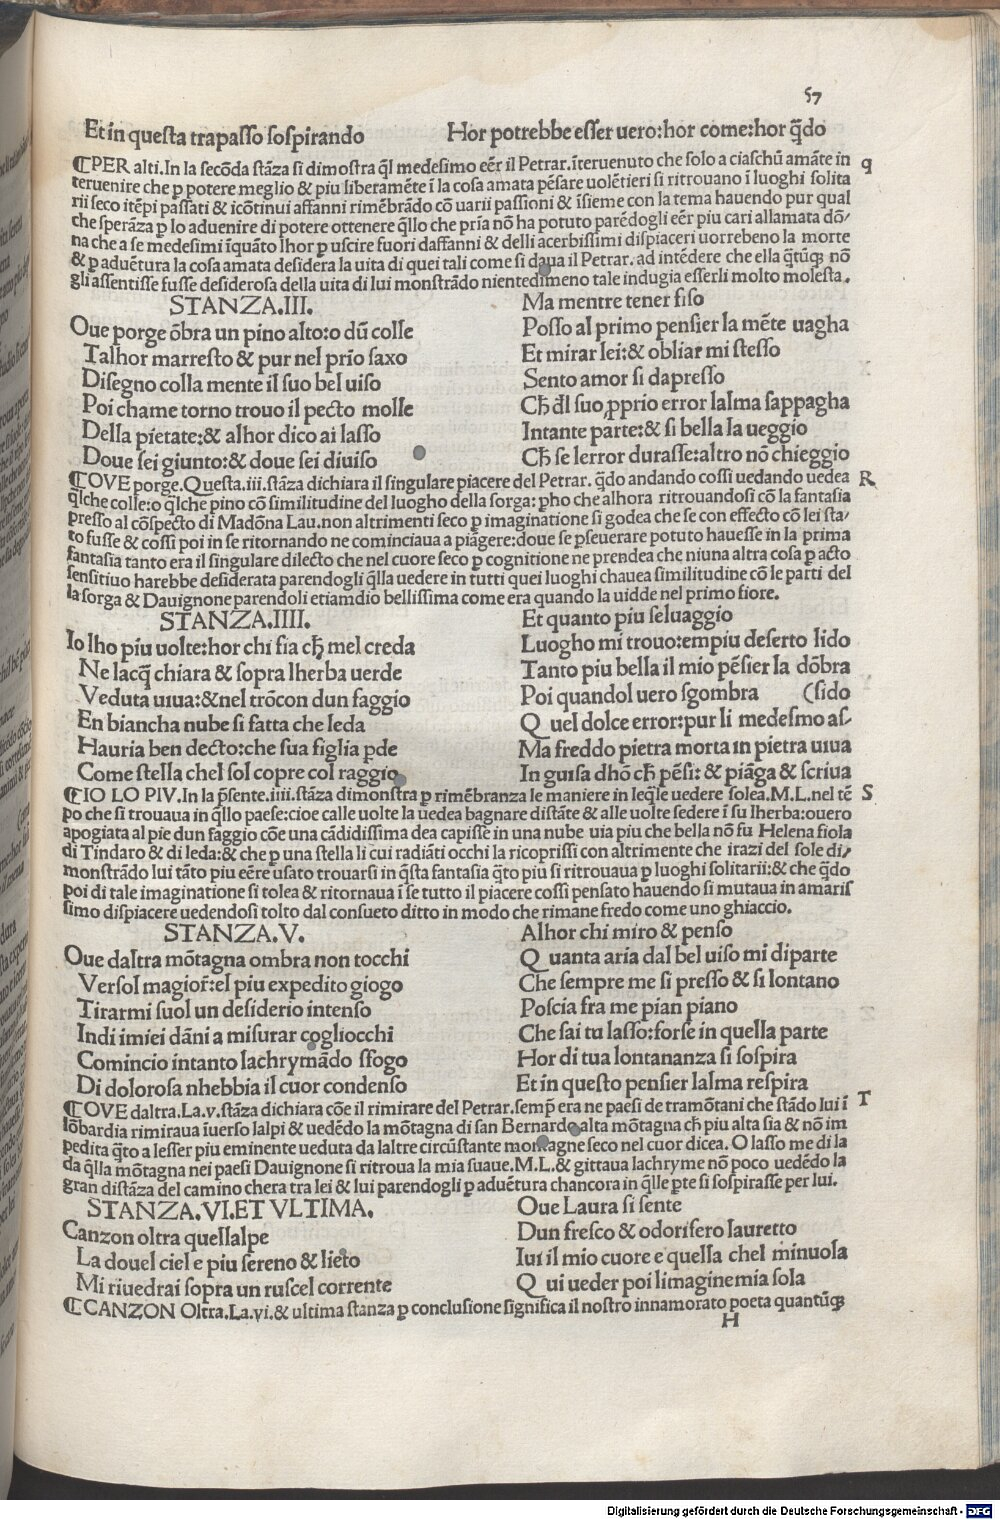 57
Et in questa trapasso sospirando
Hor potrebbe esser uero:hor come:hor q̃do
⁋PER alti.In la secõda stãza si dimostra q̃l medesimo eẽr il Petrar.ĩteruenuto che solo a ciaschũ amãte in q
teruenire che ꝑ potere meglio & piu liberamẽte ĩ la cosa amata pẽsare uolẽtieri si ritrouano ĩ luoghi solita
rii seco itẽpi passati & icõtinui affanni rimẽbrãdo cõ uarii passioni & ĩsieme con la tema hauendo pur qual
che sperãza ꝑ lo aduenire di potere ottenere q̃llo che pría nõ ha potuto parẽdogli eẽr piu cari allamata dõ/
na che a se medesimi ĩquãto lhor ꝑ uscire fuori daffanni & delli acerbissimi dispiaceri uorrebeno la morte
& ꝑ aduẽtura la cosa amata desidera la uita di quei tali come si daua il Petrar. ad intẽdere che ella q̃tũqꝫ nõ
gli assentisse fusse desiderosa della uita di lui monstrãdo nientedimeno tale indugia esserli molto molesta.
STANZA.III.
Oue porge õbra un pino alto:o dũ colle
Talhor marresto & pur nel prĩo saxo
Disegno colla mente il suo bel uiso
Poi chame torno trouo il pecto molle
Della pietate:& alhor dico ai lasso
Doue sei giunto:& doue sei diuiso
Ma mentre tener fiso
Posso al primo pensier la mẽte uagha
Et mirar lei:& obliar mi stesso
Sento amor si dapresso
Cħ đl suo ꝓprio error lalma sappagha
Intante parte:& si bella la ueggio
Cħ se lerror durasse:altro nõ chieggio
⁋OVE porge.Questa.iii.stãza dichiara il singulare piacere del Petrar. q̃do andando cossi uedando uedea R
q̃lche colle:o q̃lche pino cõ similitudine del luogho della sorga: ꝑho che alhora ritrouandosi cõ la fantasia
presso al cõspecto di Madõna Lau.non altrimenti seco ꝑ imaginatione si godea che se con effecto cõ lei sta/
to fusse & cossi poi in se ritornando ne cominciaua a piãgere:doue se ꝑseuerare potuto hauesse in la prima
fantasia tanto era il singulare dilecto che nel cuore seco ꝑ cognitione ne prendea che niuna altra cosa ꝑ acto
sensitiuo harebbe desiderata parendogli q̃lla uedere in tutti quei luoghi chauea similitudine cõ le parti del
la sorga & Dauignone parendoli etiamdio bellissima come era quando la uidde nel primo fiore.
STANZA.IIII.
Io lho piu uolte:hor chi fia cħ mel creda
Ne lacq̃ chiara & sopra lherba uerde
Veduta uiua:&nel trõcon dun faggio
En biancha nube si fatta che leda
Hauria ben decto:che sua figlia ꝑde
Come stella chel sol copre col raggio
Et quanto piu seluaggio
Luogho mi trouo:empiu deserto lido
Tanto piu bella il mio pẽsier la dõbra
Poi quandol uero sgombra (sido
Q uel dolce error:pur li medesmo as-
Ma freddo pietra morta in pietra uiua
In guisa dhõ cħ pẽsi: & piãga & scriua
⁋IO LO PIV.In la p̃sente.iiii.stãza dimonstra ꝑ rimẽbranza le maniere in leq̃le uedere solea.M.L.nel tẽ S
po che si trouaua in q̃llo paese:cioe calle uolte la uedea bagnare distãte & alle uolte sedere ĩ su lherba:ouero
apogiata al pie dun faggio cõe una cãdidissima dea capisse in una nube uia piu che bella nõ fu Helena fiola
di Tindaro & di leda:& che ꝑ una stella li cui radiãti occhi la ricoprissi con altrimente che irazi del sole di/
monstrãdo lui tãto piu eẽre usato trouarsi in q̃sta fantasia q̃to piu si ritrouaua ꝑ luoghi solitarii:& che q̃do
poi di tale imaginatione si tolea & ritornaua ĩ se tutto il piacere cossi pensato hauendo si mutaua in amaris
simo dispiacere uedendosi tolto dal consueto ditto in modo che rimane fredo come uno ghiaccio.
STANZA.V.
Oue daltra mõtagna ombra non tocchi
Versol magior:el piu expedito giogo
Tirarmi suol un desiderio intenso
Indi imiei dãni a misurar cogliocchi
Comincio intanto lachrymãdo sfogo
Di dolorosa nhebbia il cuor condenso
Alhor chi miro & penso
Q uanta aria dal bel uiso mi diparte
Che sempre me si presso & si lontano
Poscia fra me pian piano
Che sai tu lasso:forse in quella parte
Hor di tua lontananza si sospira
Et in questo pensier lalma respira
⁋OVE daltra.La.v.stãza dichiara cõe il rimirare del Petrar.semp̃ era ne paesi de tramõtani che stãdo lui ĩ T
lõbardia rimiraua ĩuerso lalpi & uedẽdo la mõtagna di san Bernardo alta mõtagna cħ piu alta sia & nõ im
pedita q̃to a lesser piu eminente ueduta da laltre circũstante montagne seco nel cuor dicea. O lasso me di la
da q̃lla mõtagna nei paesi Dauignone si ritroua la mia suaue.M.L.& gittaua lachryme nõ poco uedẽdo la
gran distãza del camino chera tra lei & lui parendogli ꝑ aduẽtura chancora in q̃lle ꝑte si sospirasse per lui.
STANZA.VI.ET VLTIMA.
Canzon oltra quellalpe
La douel ciel e piu sereno & lieto
Mi riuedrai sopra un ruscel corrente
Oue Laura si sente
Dun fresco & odorifero lauretto
Iui il mio cuore e quella chel minuola
Q ui ueder poi limagine mia sola
⁋CANZON Oltra.La.vi.& ultima stanza ꝑ conclusione significa il nostro innamorato poeta quantũqꝫ
H
Digitalisierung gefördert durch die Deutsche Forschungsgemeinschaft - DFG